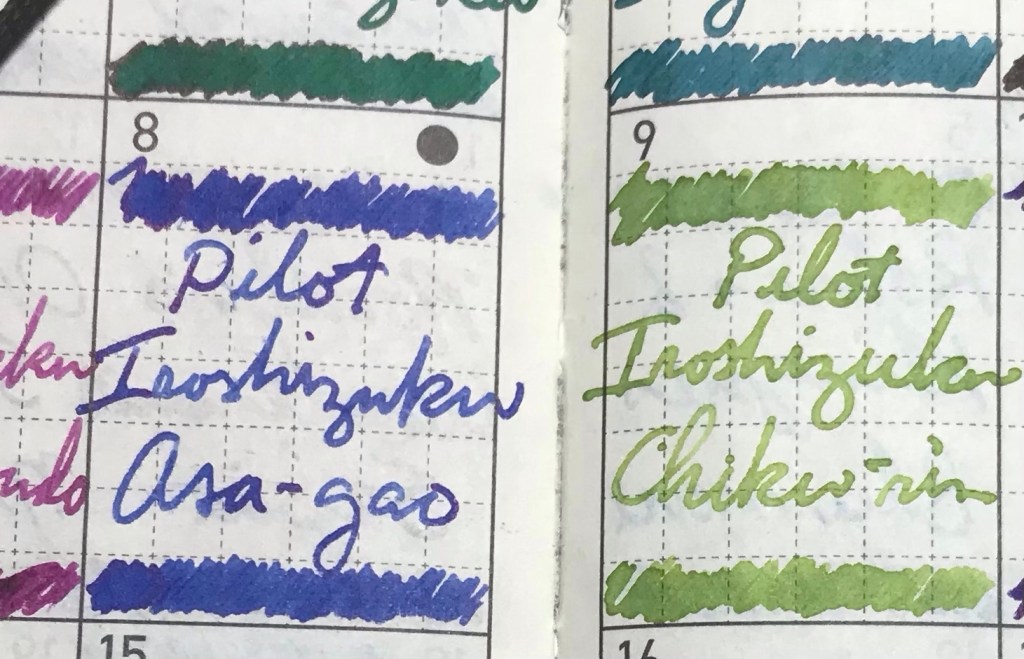 8
Pilot
Iroshizuku
Asa-gao
15
9
Pilot
Iroshizuku
Chiku-rin
16